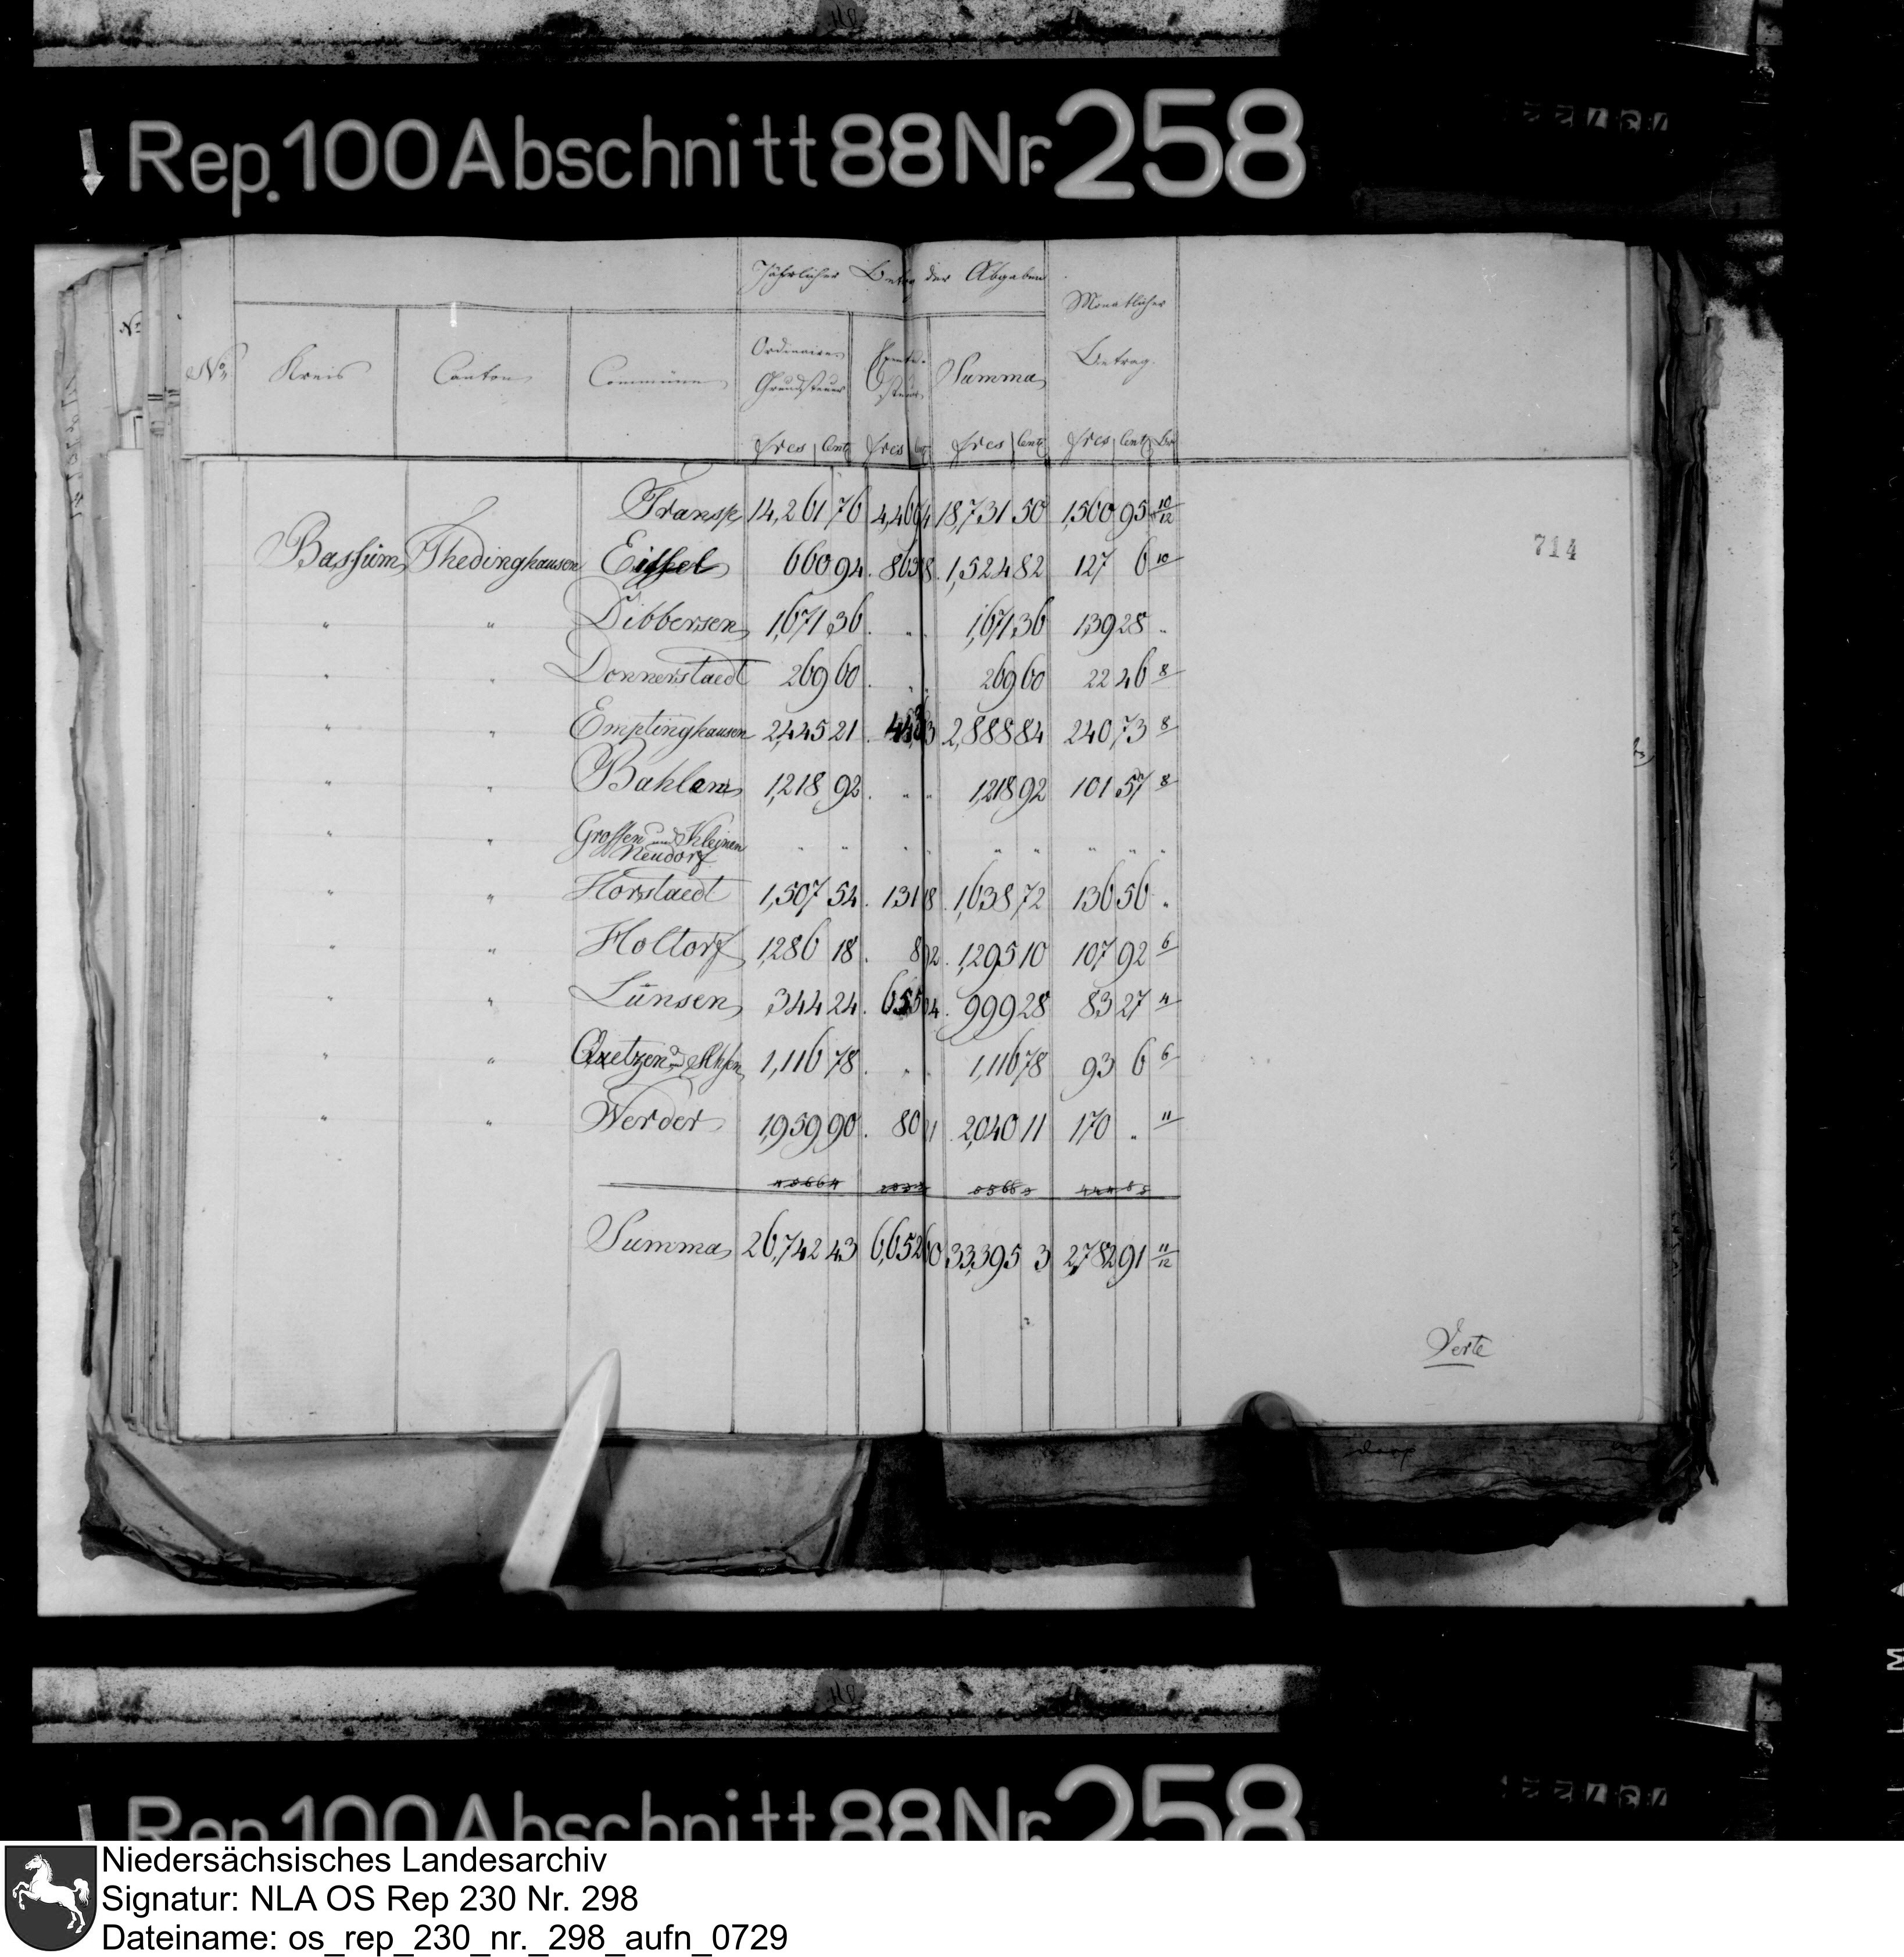 Rep. 100 Abschnitt 88 Nr. 258
Jährlicher Betrag der Abgaben
Monatlicher
Betrag.
No. Kreis Canton Commünen Ordinaire Grundsteuer Summa
frcs Cent frcs frcs Cent frcs Cent
Transp 14,261 76 18,731 50 1,560 95 10/12
714
Bassüm Thedinghausen Eissel 660 94. 863 88. 1,524 82 127 6 10
" " Dibbersen 1,671 36. " . 1,671 36 139 28 "
" " Donnerstaedt 269 60. " . 269 60 22 46 8
" " Emptinghausen 2,445 21. 443 63 2,888 84 240 73 8
" " Bahlum 1,218 92. " " 1,218 92 101 57 8
" " Grossen und Kleinen
Neudorf " " " " " " " " "
" " Horstaedt 1,507 54. 131 18. 1,638 72 136 56 "
" " Holtorf 1,286 18. 8 92. 1,295 10 107 92 6
" " Lünsen 344 24. 655 04. 999 28 83 27 4
" " Quetzen und Ahsen 1,116 78. " . 1,116 78 93 6 6
" " Werder 1,959 90. 80 21 2,040 11 170 " 11
Summa 26,742 43 6,652 60 33,395 3 2,782 91 11/12
Verte
Rep. 100 Abschnitt 88 Nr. 258
Niedersächsisches Landesarchiv
Signatur: NLA OS Rep 230 Nr. 298
Dateiname: os_rep_230_nr._298_aufn_0729